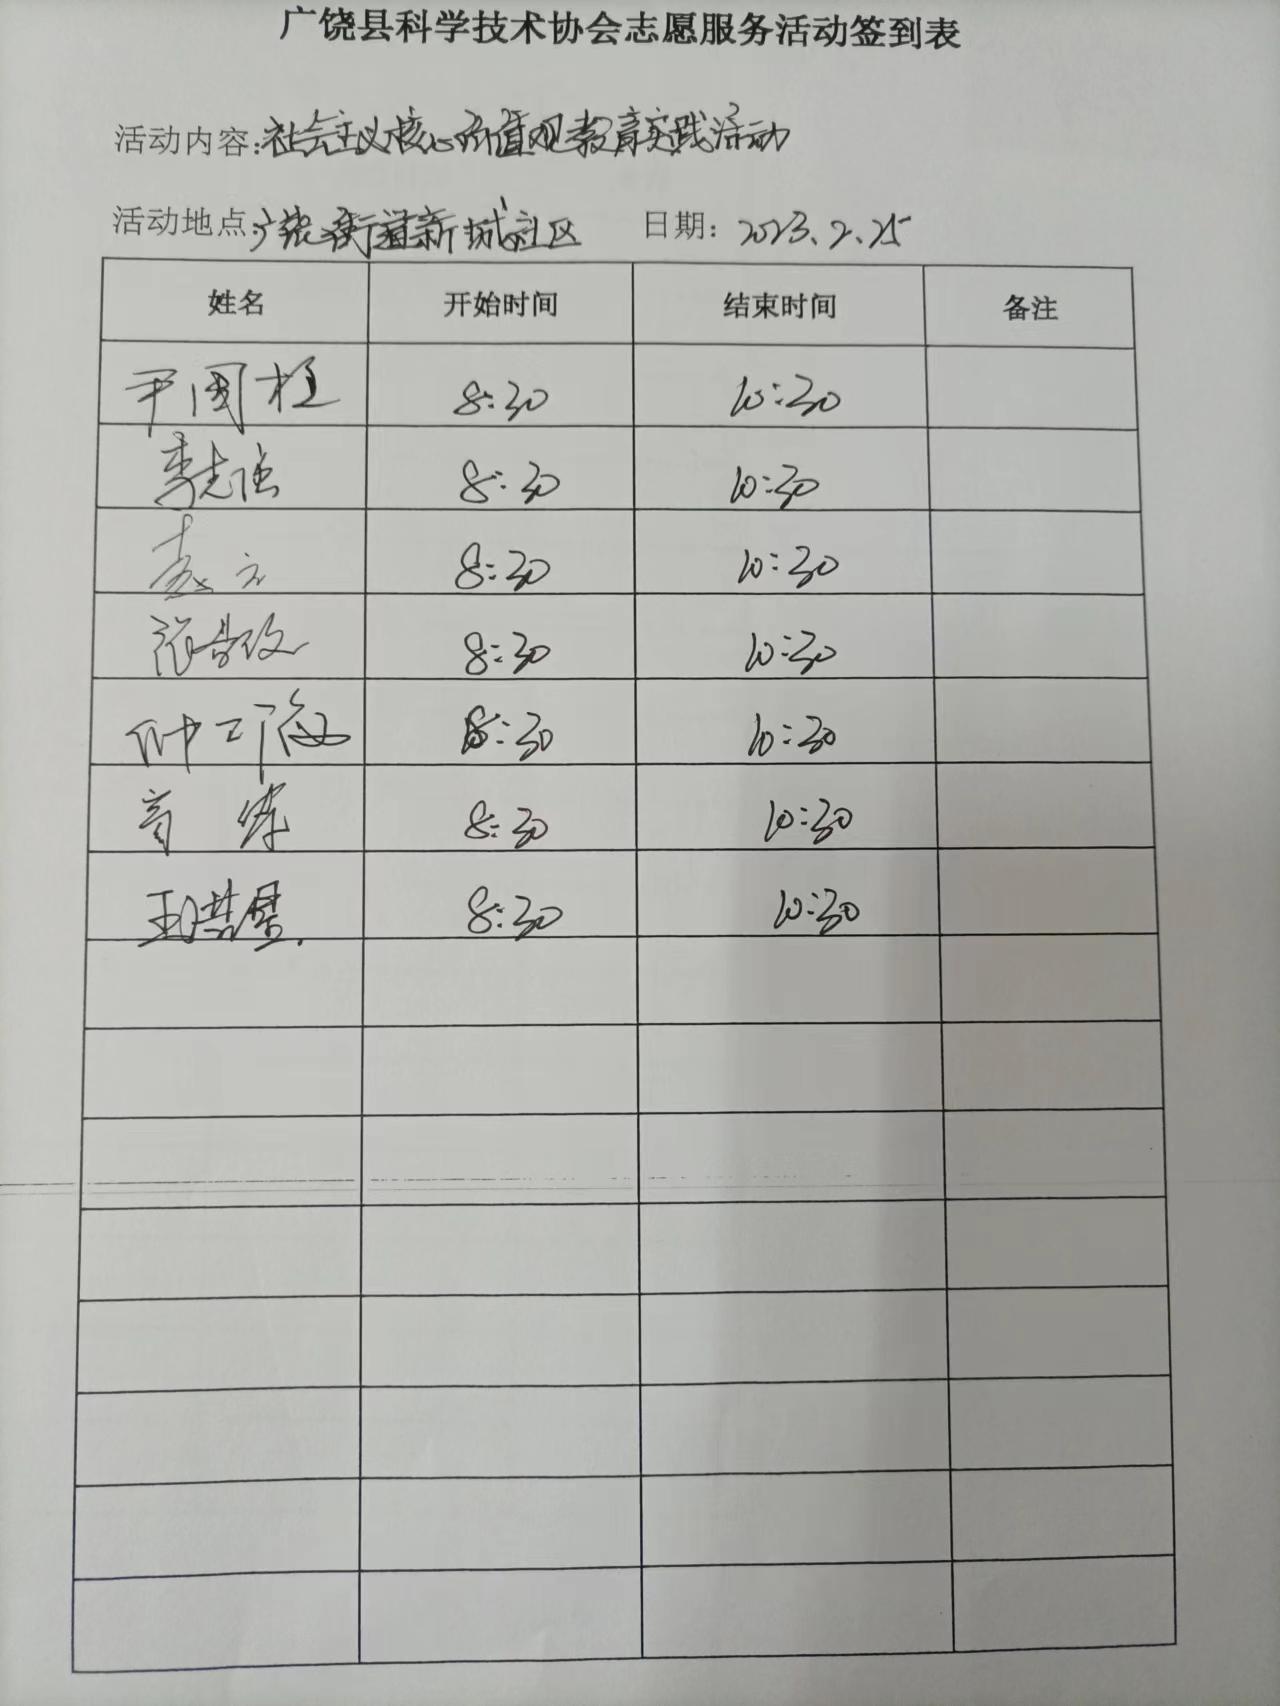 广饶县科学技术协会志愿服务活动签到表
活动内容:社会主义核心价值观教育实践活动
活动地点:广饶街道新城社区 日期: 2023.2.25
姓名 开始时间 结束时间 备注
尹国桓 8:30 10:30
李志强 8:30 10:30
8:30 10:30
张 8:30 10:30
8:30 10:30
8:30 10:30
王 8:30 10:30